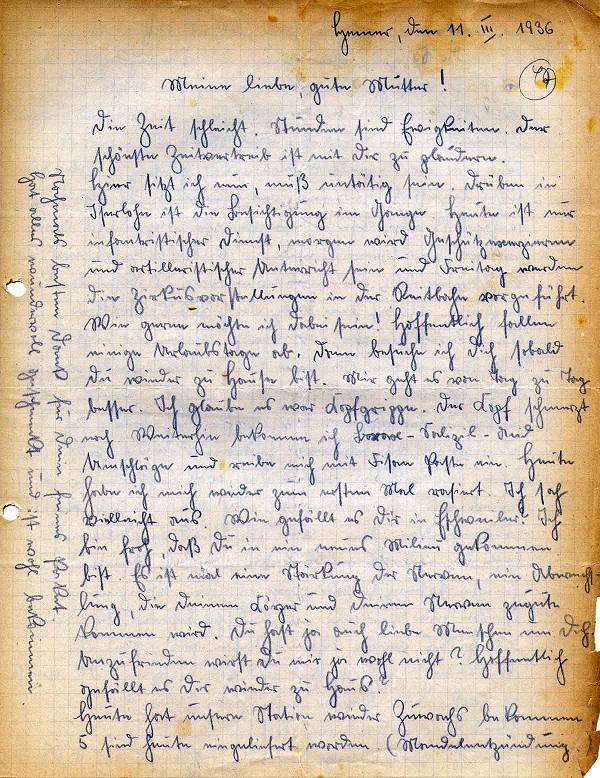 Hemer, den 11. III. 1936
Meine liebe, gute Mutter!
Die Zeit schleicht. Stunden sind Ewigkeiten. Der
schönste Zeitvertreib ist mit Dir zu plaudern.
Hier sitzt ich nun, muß untätig sein. Drüben in
Iserlohn ist die Besichtigung im Gange. Heute ist nur
infanteristischer Dienst, morgen wird Geschützexerzieren
und artilleristischer Unterricht sein und Freitag werden
die Zirkusvorstellungen in der Reitbahn vorgeführt.
Wie gerne möchte ich dabei sein! Hoffentlich fallen
einige Urlaubstage ab. Dann besuche ich Dich sobald
Du wieder zu Hause bist. Mir geht es von Tag zu Tag
besser. Ich glaube es war Kopfgrippe. Der Kopf schmerzt
noch. Weiterhin bekomme ich Salizil- und
Umschläge und reibe mich mit Paste ein. Heute
habe ich mich wieder zum ersten Mal rasiert. Ich sah
vielleicht aus. Wie gefällt es Dir in Eschweiler? Ich
bin froh, daß Du in ein neues Milieu gekommen
bist. Es ist mal eine Stärkung der Nerven, eine Abwechs-
lung, die Deinem Körper und Deinen Nerven zugute
kommen wird. Du hast ja auch liebe Menschen um Dich.
Unzufrieden wirst Du mir ja wohl nicht? Hoffentlich
gefällt es Dir wieder zu Haus?
Heute hat unsere Station wieder Zuwachs bekommen
5 sind heute eingeliefert worden (Mandelentzündung
Nochmals besten Dank für Dein feines Paket
hat alles wundervoll geschmeckt und ist wohl bekommen.